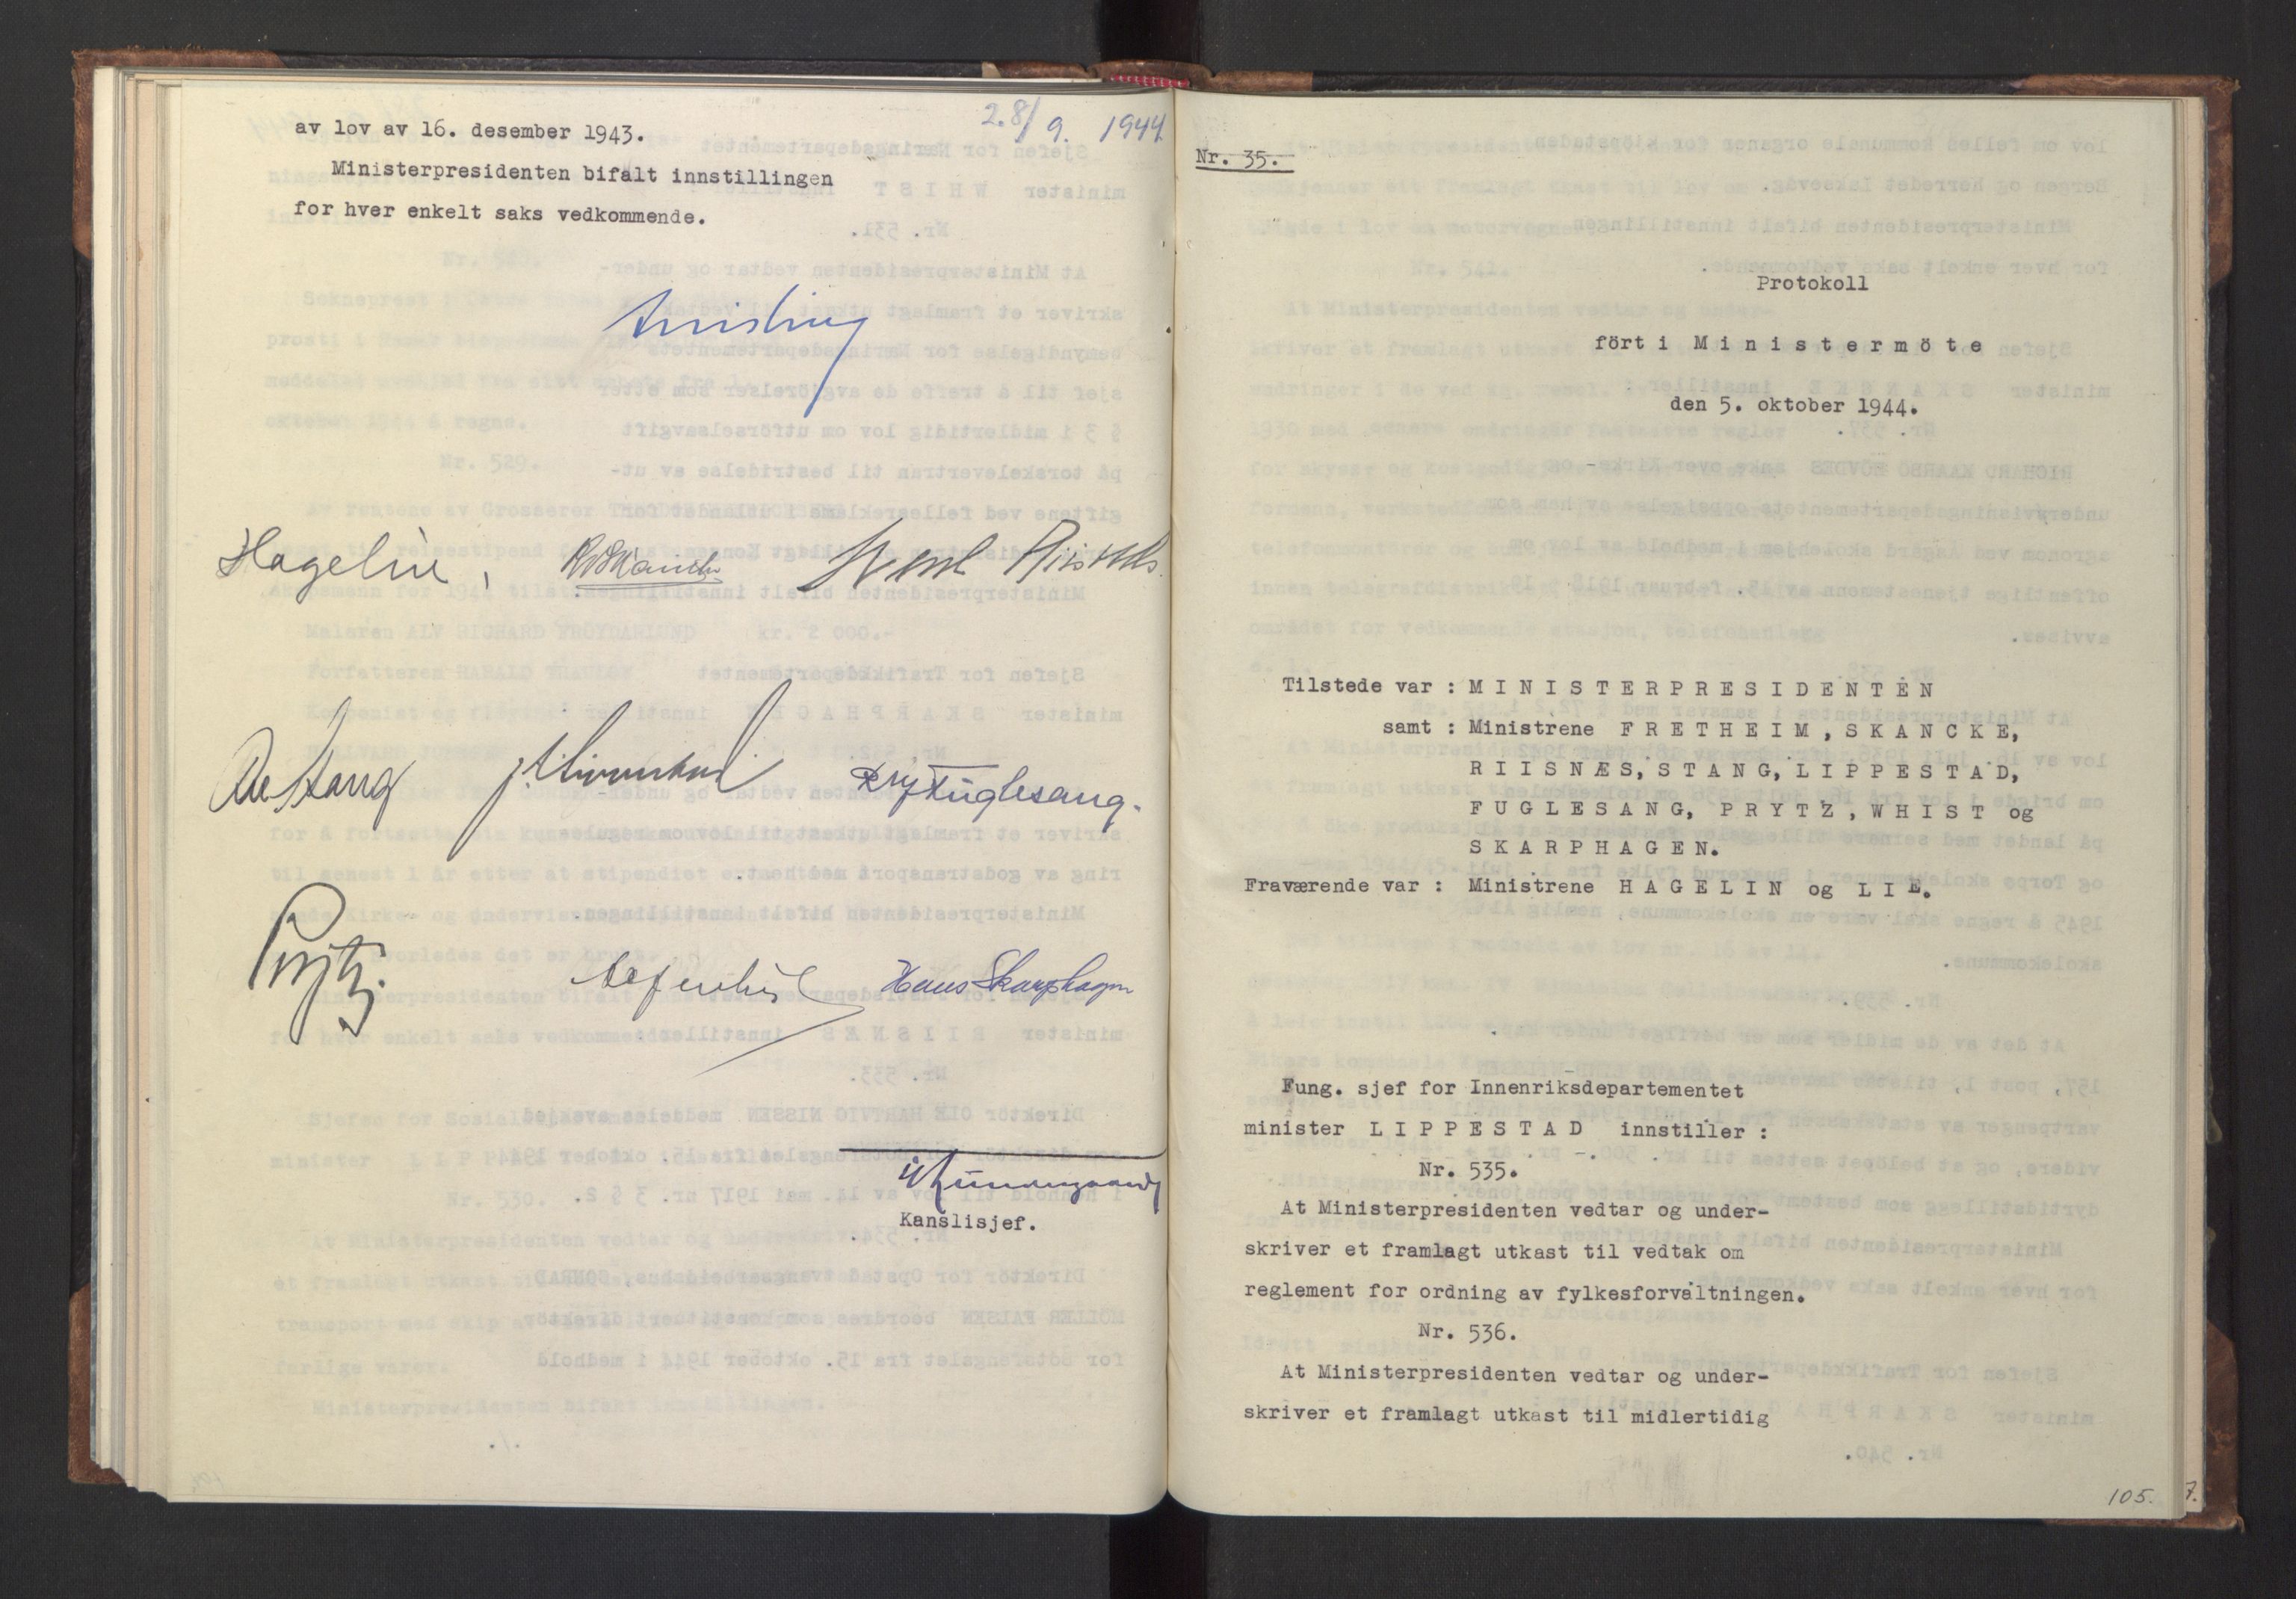 28/9. 1944
av lov av 16. desember 1943.
Ministerpresidenten bifalt innstillingen
for hver enkelt saks vedkommende.
Quisling
Hagelin, RSkancke Sverre Riisnæs
Axel Stang J. Lippestad R Fuglesang.
Prytz. Alf Whist Hans Skarphagen
Kanslisjef.
Nr. 35.
Protokoll
fört i Ministermöte
den 5. oktober 1944.
Tilstede var : MINISTERPRESIDENTEN
samt : Ministrene FRETHEIM, SKANCKE,
RIISNÆS, STANG, LIPPESTAD,
FUGLESANG, PRYTZ, WHIST og
SKARPHAGEN.
Fraværende var : Ministrene HAGELIN og LIE.
Fung. sjef for Innenriksdepartementet
minister LIPPESTAD innstiller :
Nr. 535.
At Ministerpresidenten vedtar og under-
skriver et framlagt utkast til vedtak om
reglement for ordning av fylkesforvaltningen.
Nr. 536.
At Ministerpresidenten vedtar og under-
skriver et framlagt utkast til midlertidig
105.
7.